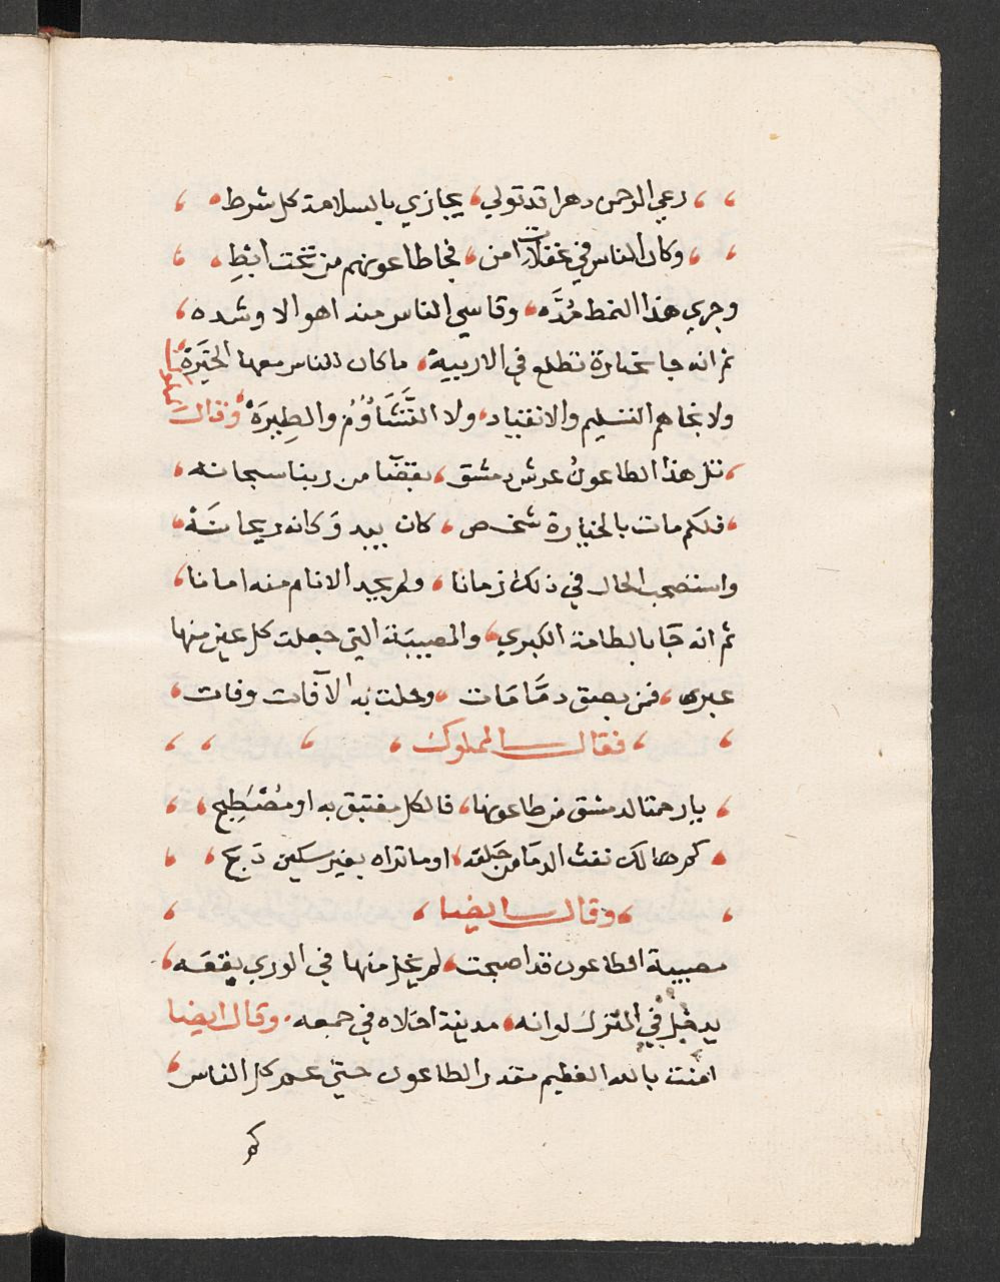 رعي الرحمن دهرا قد تولي، يجازي بالسلامة كل شرط
وكان الناس في غفلات امن، فجا طاعونهم من تحت ابْطِ
وجري هذا النمط مُدَّه، وقاسي الناس منه اهوالا وشده
ثم انه جا بخيارة تطلع في الاربية، ما كان للناس معها الخيَرَة
ولا نجاهم التسليم والانقياد، ولا التَّشَاوُمُ والطِيَرَة، وقال
هذا الطاعونُ عرش دمشق، بقضا من ربنا سبحانه
فلكم مات بالخيارة شخص، كان بيد وَكانه ريحانَة
واستصحب الحال في ذلك زمانا، ولم يجد الانام منه امانا
ثم انه جَا بالطامة الكبري، والمصيبَة التي جعلت كل عين منها
عبري، فمن بصق دمًا مَات، وحلت به الآفات وفات
فقال المملوك
يا رحمتا لدمشق من طاعونها، فالكل مغتبق به او مُصْطَبِح
كم هالك نفث الدمَا من حَلقه، او ما تراه بغير سكين ذبح
وقال ايضا
مصيبة الطاعون قد اصبحت، لم يخل منها في الوري بقعَه
يدخل في المنزل لو انه، مدينة اخلاه في جمعه. وقال ايضا
امنت بالله العظيم مقدر الطاعون حتى عم كل الناس